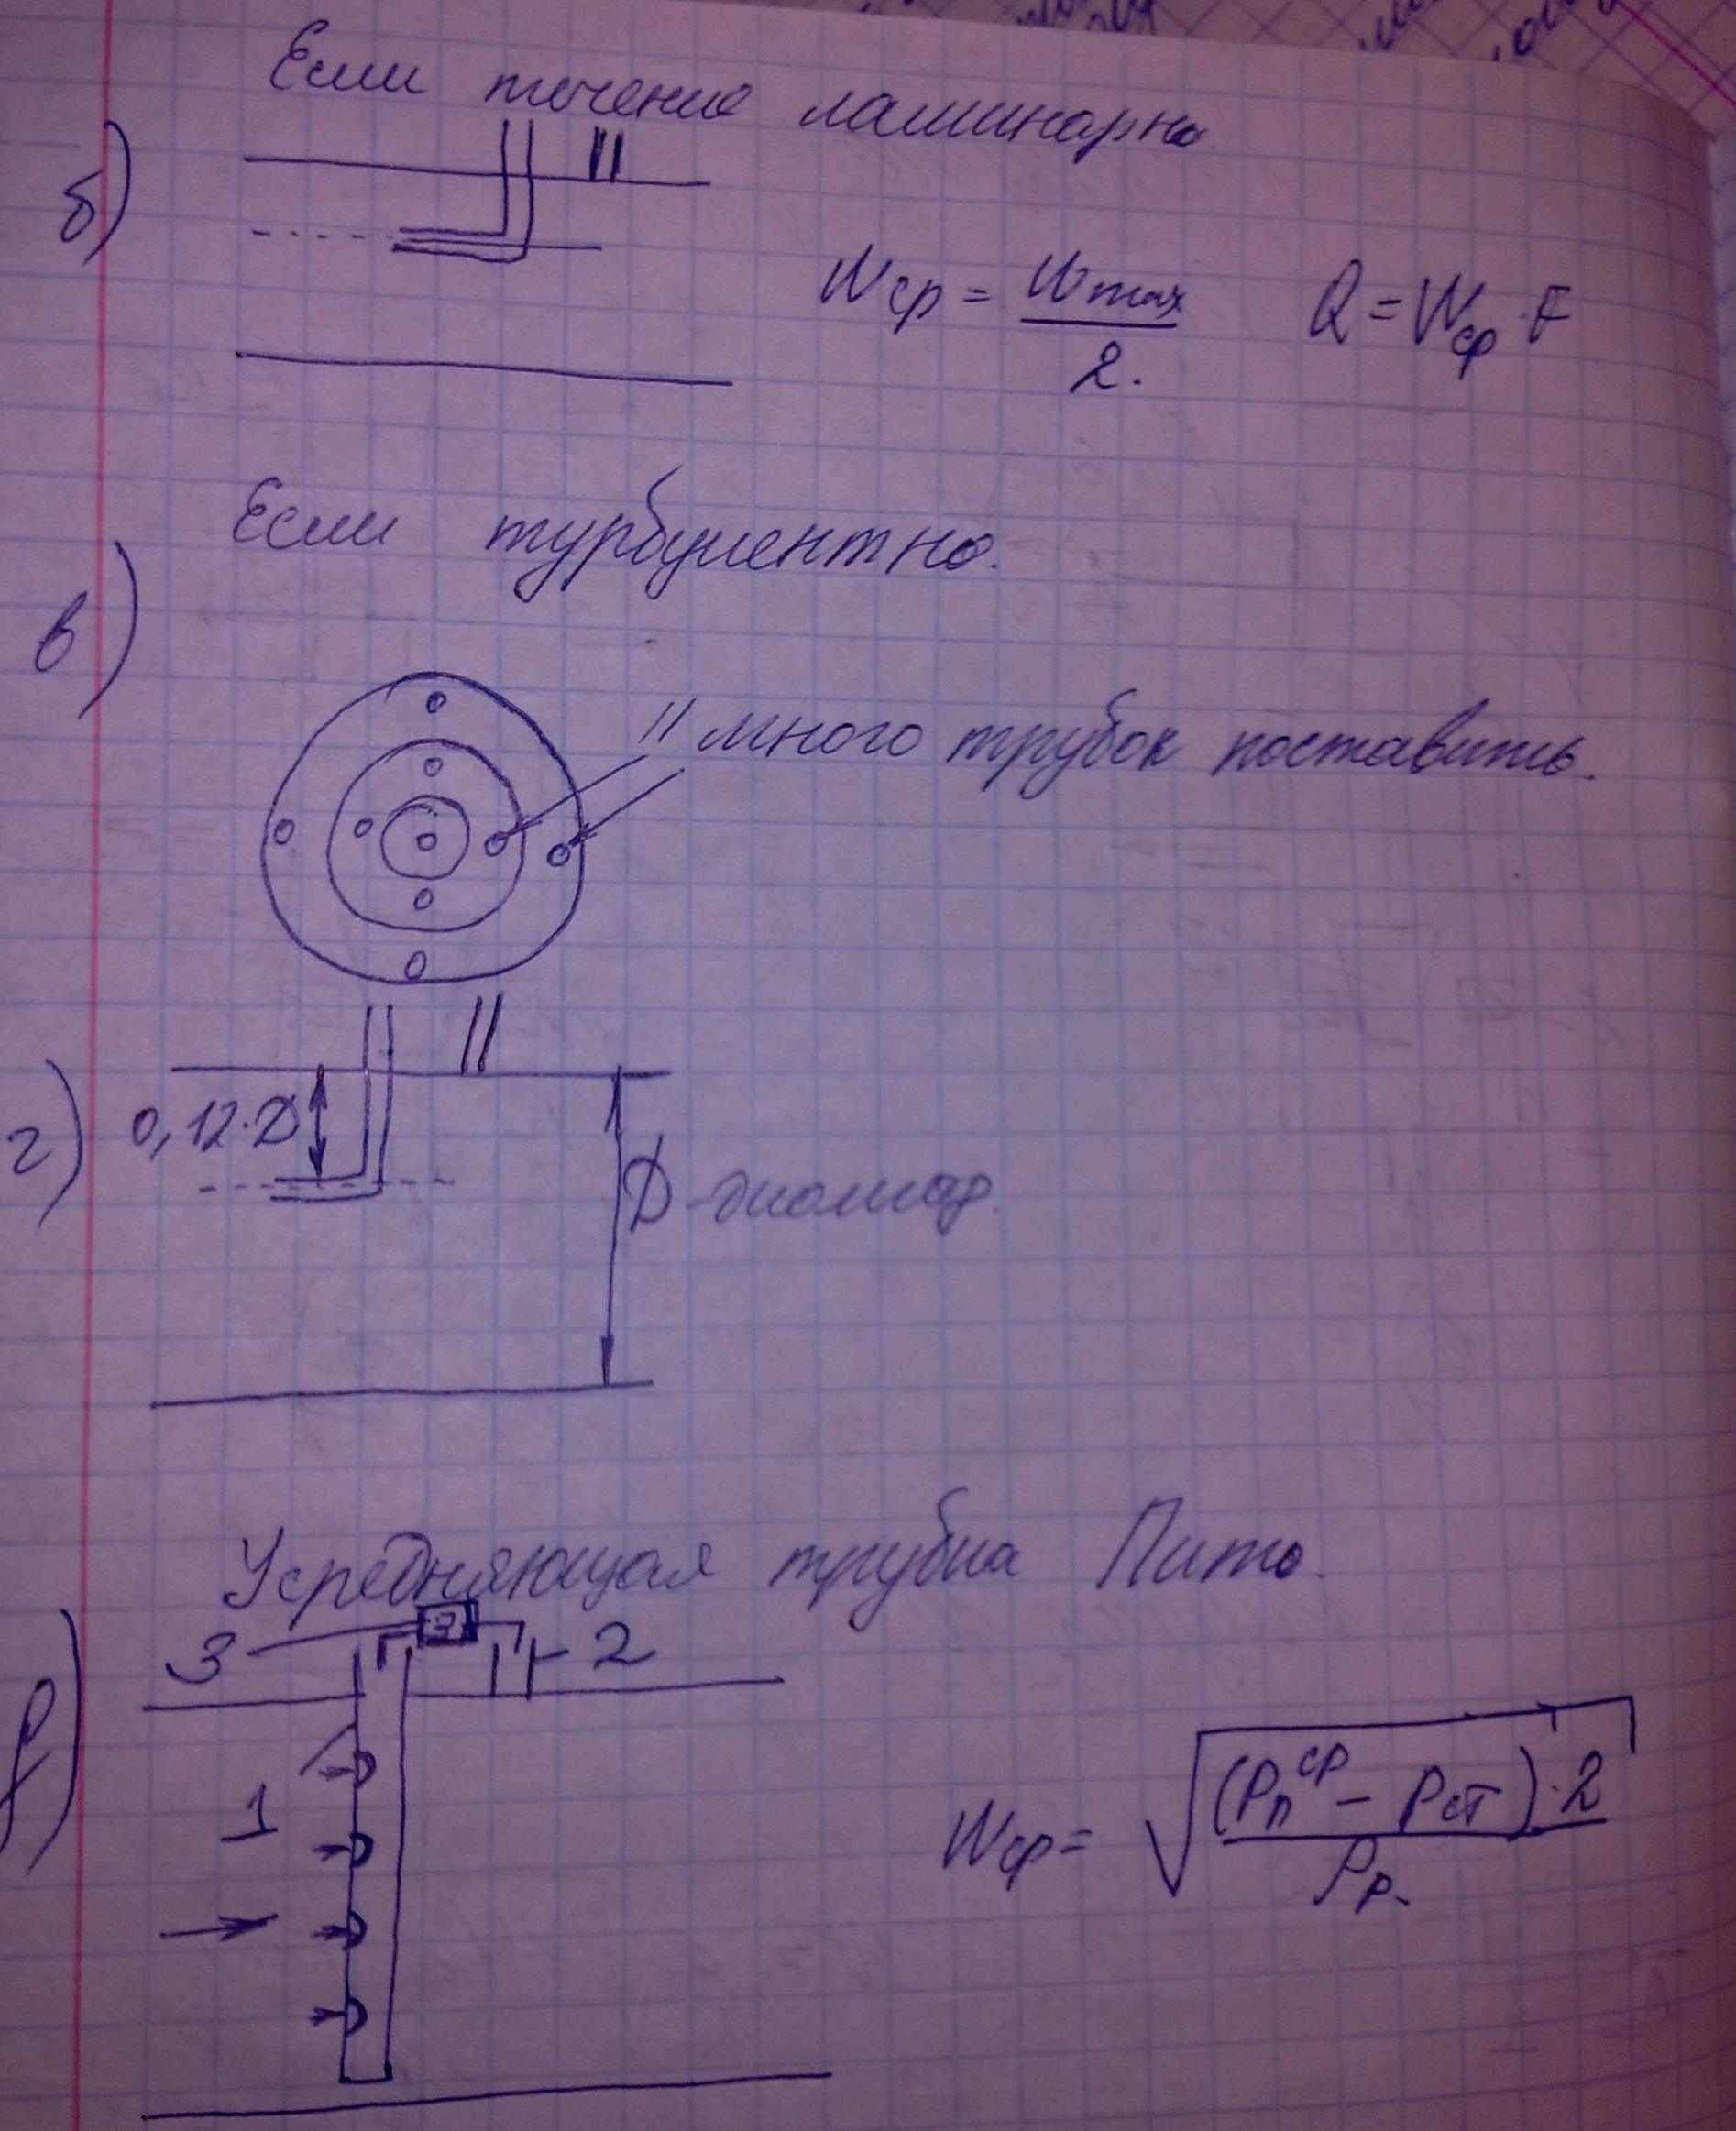 Если течение ламинарно
б)
Wср = Wmax / 2. Q = Wср · F
Если турбулентно.
в)
много трубок поставить.
г) 0,12·D
D - диаметр.
Усредняющая трубка Пито.
3 3 2
1
Wср = √((Pпср - Pст)·2 / ρр.)